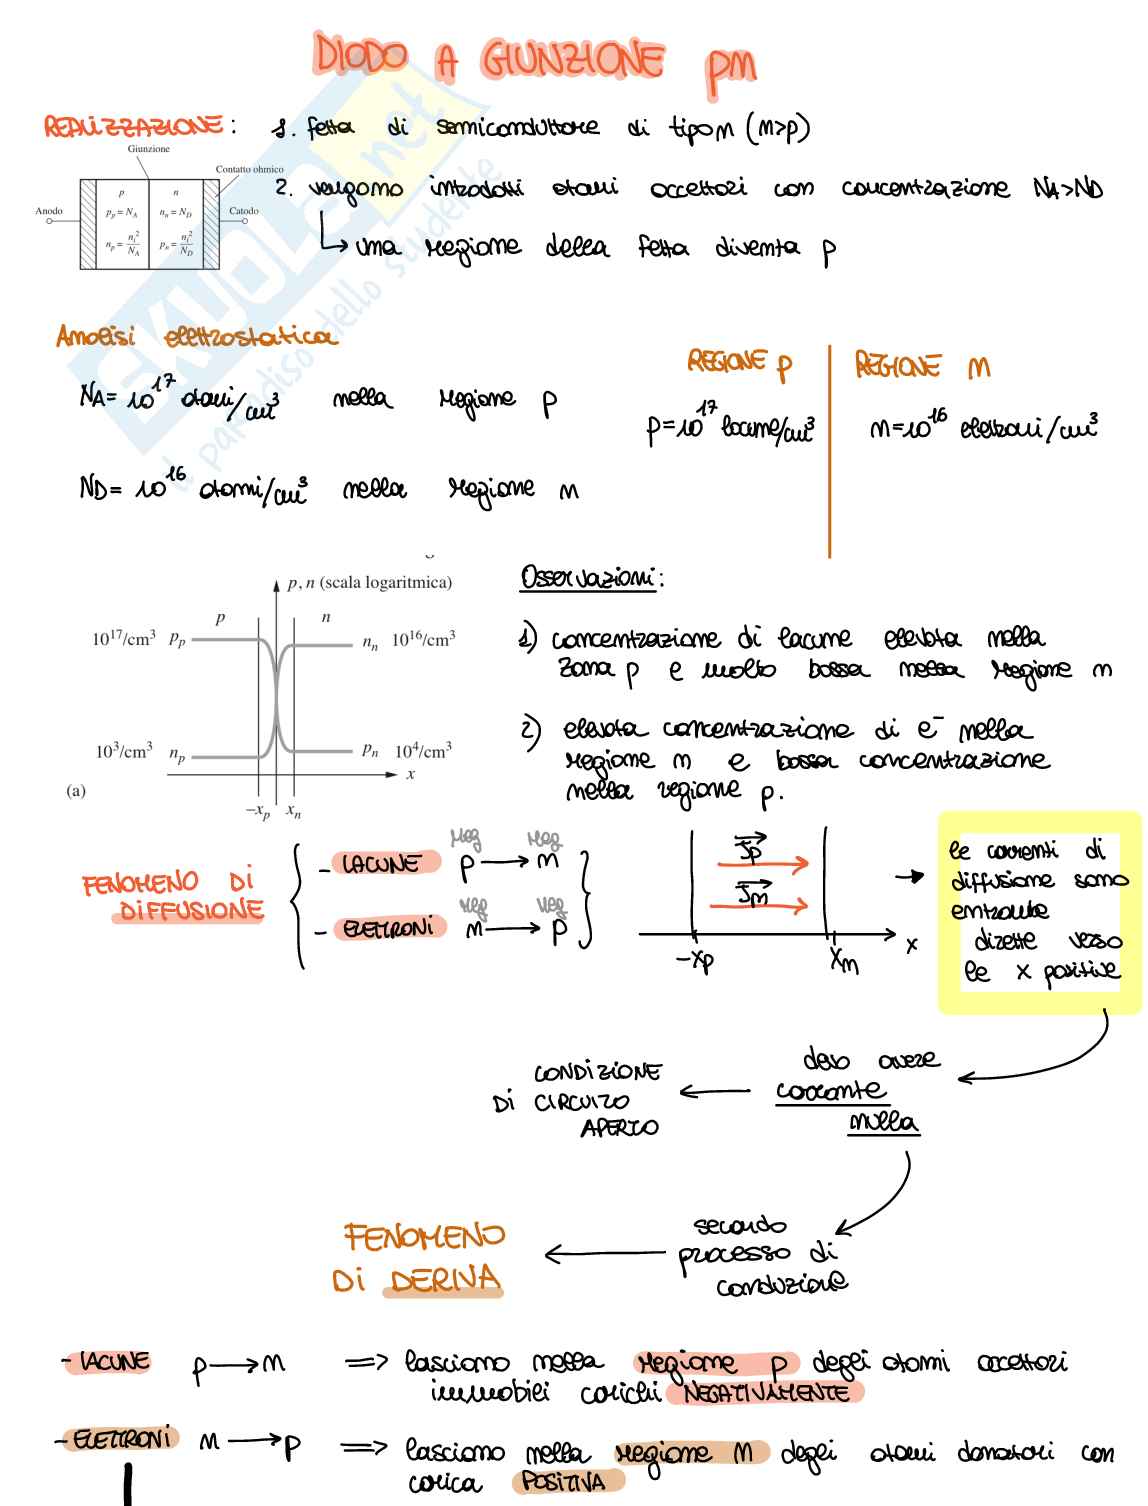 DIODO A GIUNZIONE pn
REALIZZAZIONE: 1. fetta di semiconduttore di tipo n (n>p)
Giunzione
Contatto ohmico
Anodo
p n
p_p = N_A n_n = N_D
n_p = n_i²/N_A p_n = n_i²/N_D
Catodo
2. vengono introdotti atomi accettori con concentrazione NA>ND
↳ una regione della fetta diventa p
SKUOLA.net
il paradiso dello studente
Analisi elettrostatica
NA= 10^17 atomi/cm³ nella regione p
ND= 10^16 atomi/cm³ nella regione n
REGIONE p
p=10^17 lacune/cm³
REGIONE n
n=10^16 elettroni/cm³
p, n (scala logaritmica)
p n
10^17/cm³ p_p
n_n 10^16/cm³
10^3/cm³ n_p
p_n 10^4/cm³
x
(a)
−x_p x_n
Osservazioni:
1) concentrazione di lacune elevata nella
zona p e molto bassa nella regione n
2) elevata concentrazione di e⁻ nella
regione n e bassa concentrazione
nella regione p.
FENOMENO Di
DiFFUSIONE
reg reg
- LACUNE p → n
reg reg
- ELETTRONI n → p
Jp
Jn
-xp xn x
→ le correnti di
diffusione sono
entrambe
dirette verso
le x positive
devo avere
corrente
nulla
CONDIZIONE
Di CIRCUITO
APERTO
secondo
processo di
conduzione
FENOMENO
Di DERIVA
- LACUNE p → n => lasciano nella regione p degli atomi accettori
immobili carichi NEGATIVAMENTE
- ELETTRONI n → p => lasciano nella regione n degli atomi donatori con
carica POSITIVA